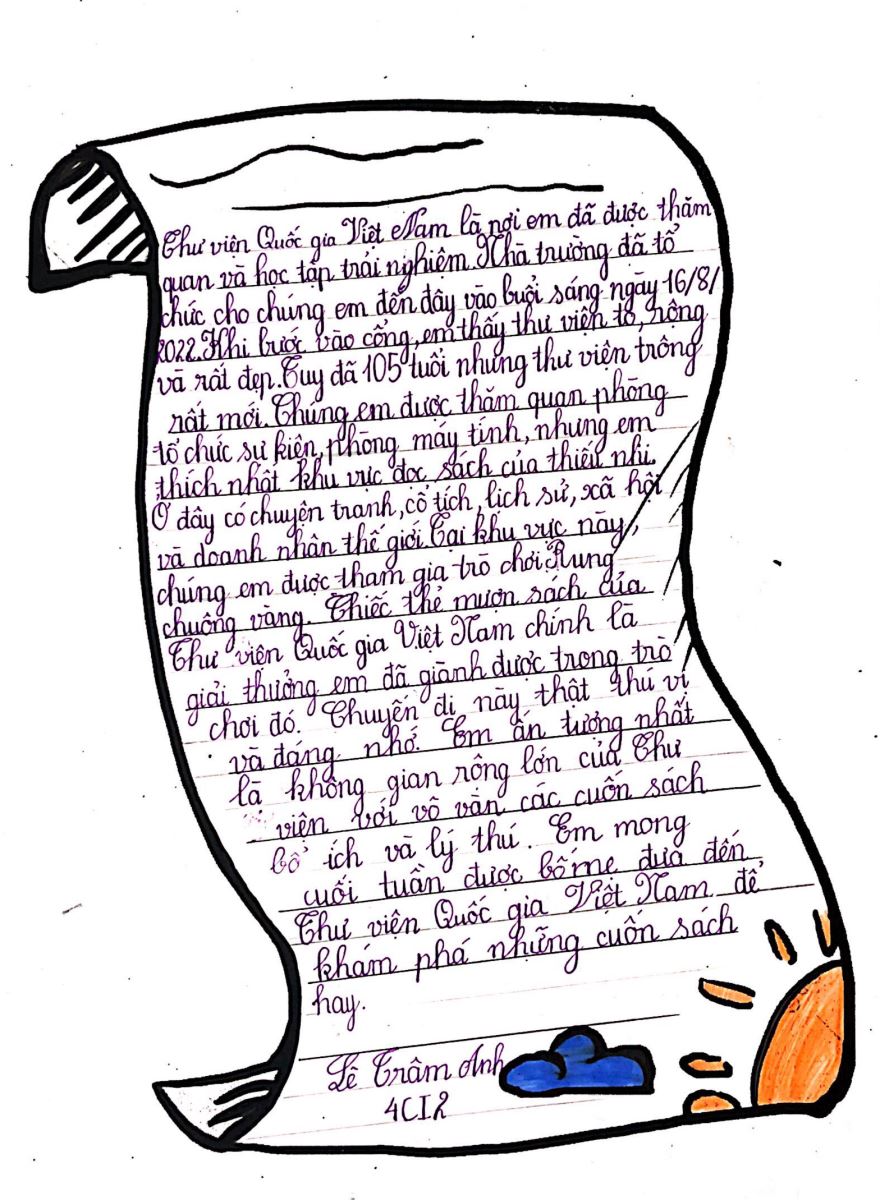 Thư viện Quốc gia Việt Nam là nơi em đã được thăm
quan và học tập trải nghiệm. Nhà trường đã tổ
chức cho chúng em đến đây vào buổi sáng ngày 16/8/
2022. Khi bước vào cổng, em thấy thư viện to, rộng
và rất đẹp. Tuy đã 105 tuổi nhưng thư viện trông
rất mới. Chúng em được thăm quan phòng
tổ chức sự kiện, phòng máy tính, nhưng em
thích nhất khu vực đọc sách của thiếu nhi.
Ở đây có chuyện tranh, cổ tích, lịch sử, xã hội
và doanh nhân thế giới. Tại khu vực này,
chúng em được tham gia trò chơi Rung
chuông vàng. Chiếc thẻ mượn sách của
Thư viện Quốc gia Việt Nam chính là
giải thưởng em đã giành được trong trò
chơi đó. Chuyến đi này thật thú vị
và đáng nhớ. Em ấn tượng nhất
là không gian rộng lớn của Thư
viện với vô vàn các cuốn sách
bổ ích và lý thú. Em mong
cuối tuần được bố mẹ đưa đến
Thư viện Quốc gia Việt Nam để
khám phá những cuốn sách
hay.
Lê Trâm Anh
4CI2